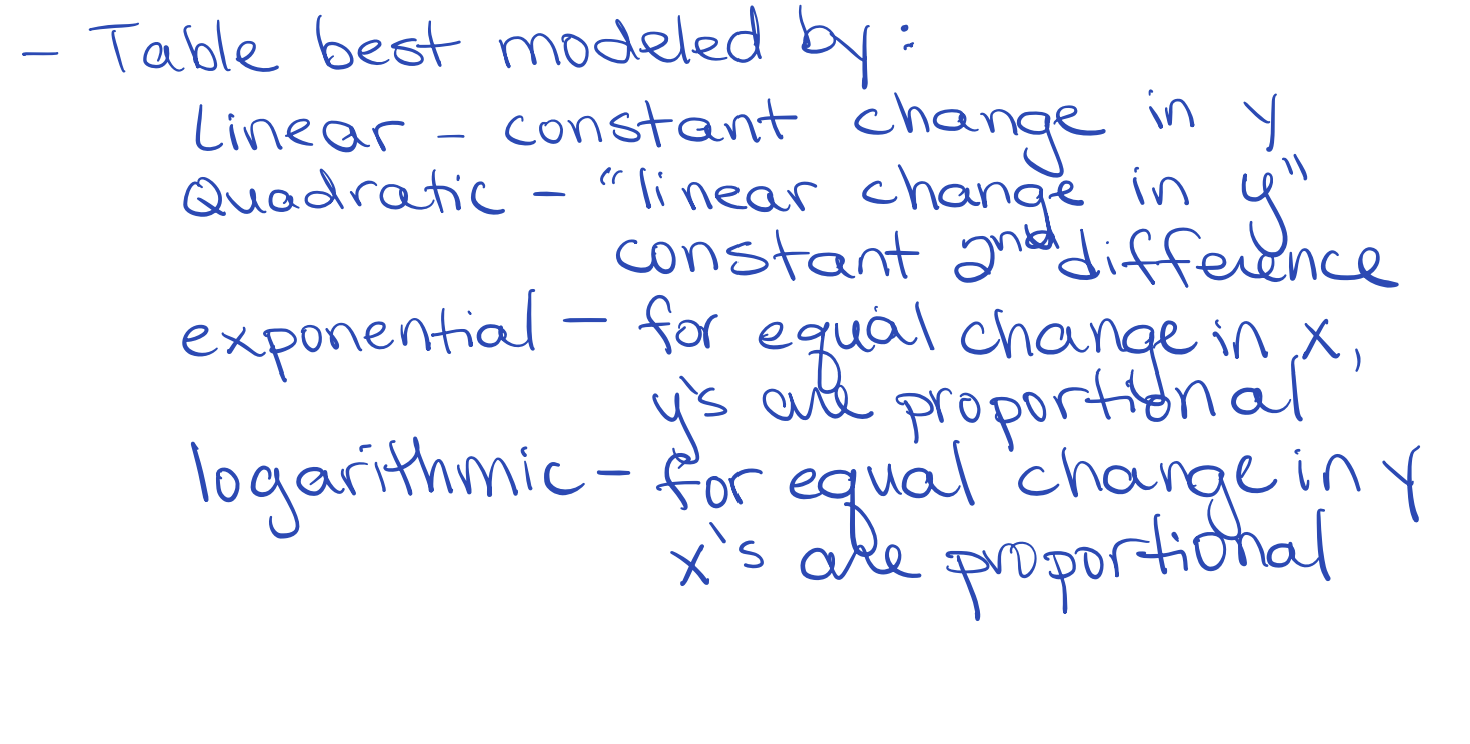 - Table best modeled by:
Linear - constant change in y
Quadratic - "linear change in y"
constant 2nd difference
exponential - for equal change in x,
y's are proportional
logarithmic - for equal change in y
x's are proportional